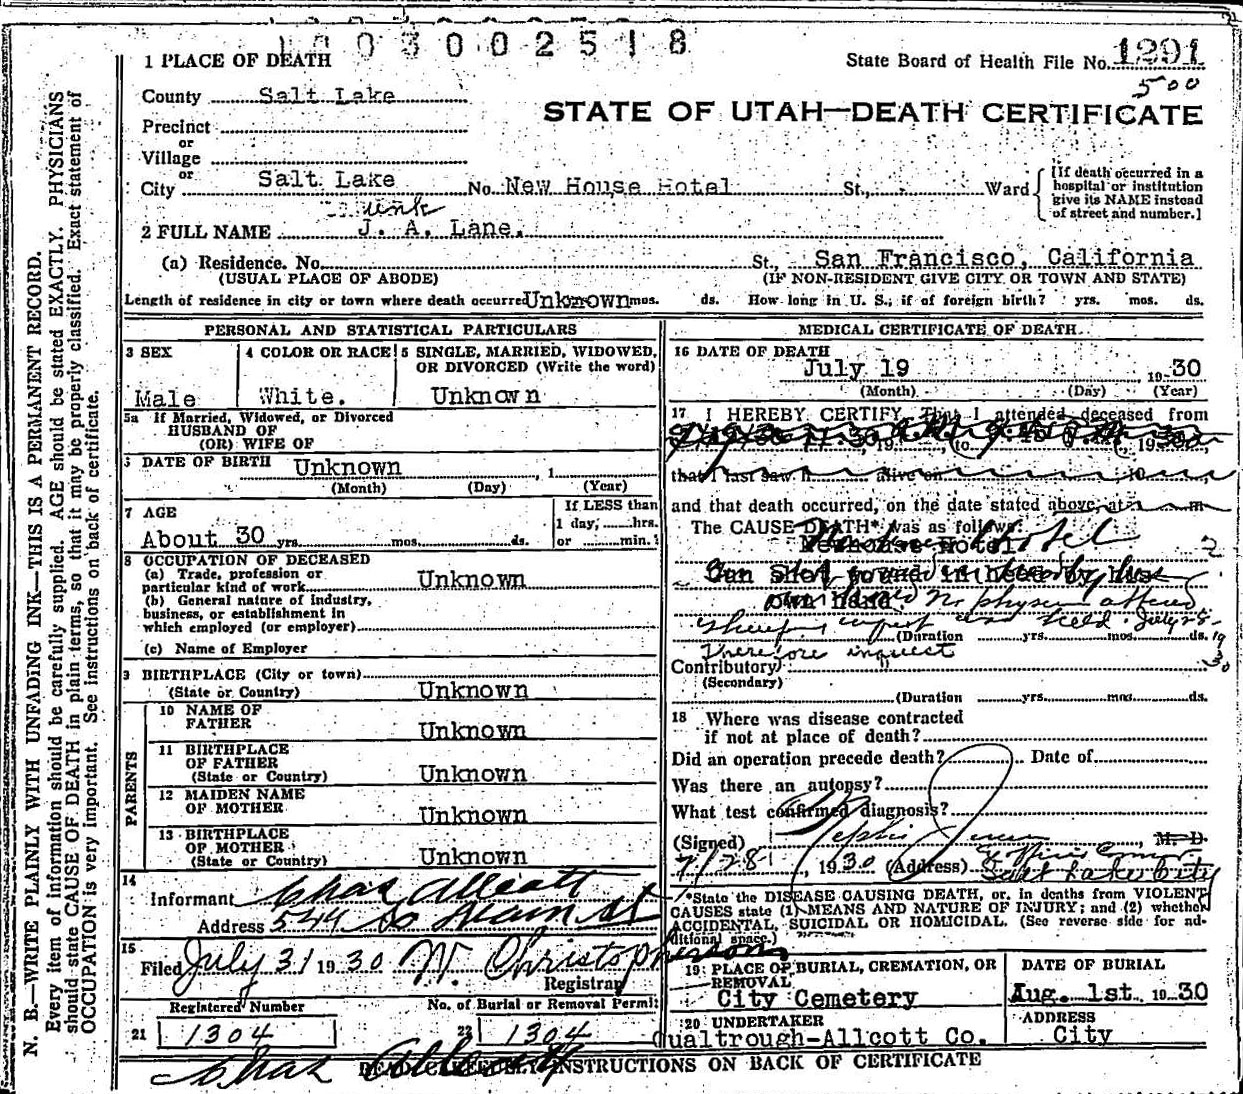 1 PLACE OF DEATH
State Board of Health File No. 1291
500
County Salt Lake
STATE OF UTAH—DEATH CERTIFICATE
Precinct
or
Village
or
City Salt Lake No. New House Hotel St., Ward
[If death occurred in a hospital or institution give its NAME instead of street and number.]
unk
2 FULL NAME J. A. Lane.
(a) Residence. No. St., San Francisco, California
(USUAL PLACE OF ABODE) (IF NON-RESIDENT GIVE CITY OR TOWN AND STATE)
Length of residence in city or town where death occurred Unknown mos. ds. How long in U. S.; if of foreign birth? yrs. mos. ds.
PERSONAL AND STATISTICAL PARTICULARS
3 SEX
Male
4 COLOR OR RACE
White.
5 SINGLE, MARRIED, WIDOWED, OR DIVORCED (Write the word)
Unknown
5a If Married, Widowed, or Divorced
HUSBAND OF
(OR) WIFE OF
DATE OF BIRTH Unknown , 1
(Month) (Day) (Year)
7 AGE
About 30 yrs. mos. ds.
If LESS than
1 day, hrs.
or min.
8 OCCUPATION OF DECEASED
(a) Trade, profession or
particular kind of work Unknown
(b) General nature of industry,
business, or establishment in
which employed (or employer)
(c) Name of Employer
9 BIRTHPLACE (City or town)
(State or Country) Unknown
PARENTS
10 NAME OF
FATHER Unknown
11 BIRTHPLACE
OF FATHER
(State or Country) Unknown
12 MAIDEN NAME
OF MOTHER Unknown
13 BIRTHPLACE
OF MOTHER
(State or Country) Unknown
14
Informant Chas Allcott
Address 544 So Main St
15
Filed July 31 1930 W. Christopherson
Registrar
Registered Number
21 1304
No. of Burial or Removal Permit
22 1304
MEDICAL CERTIFICATE OF DEATH
16 DATE OF DEATH
July 19 1930
(Month) (Day) (Year)
17 I HEREBY CERTIFY, That I attended deceased from
that I last saw h alive on 19
and that death occurred, on the date stated above, at m
The CAUSE DEATH* was as follows:
Newhouse Hotel
Gun Shot wound in head by his
own hand. No physician attend
inquest was held. July 28-
(Duration yrs. mos. ds. 19
Therefore inquest
30
Contributory
(Secondary)
(Duration yrs. mos. ds.
18 Where was disease contracted
if not at place of death?
Did an operation precede death? Date of
Was there an autopsy?
What test confirmed diagnosis?
(Signed) , M. D.
7/28 , 1930 (Address)
Salt Lake City
*State the DISEASE CAUSING DEATH, or, in deaths from VIOLENT
CAUSES state (1) MEANS AND NATURE OF INJURY; and (2) whether
ACCIDENTAL, SUICIDAL OR HOMICIDAL. (See reverse side for additional space.)
19 PLACE OF BURIAL, CREMATION, OR
REMOVAL
City Cemetery
DATE OF BURIAL
Aug. 1st. 1930
20 UNDERTAKER
Qualtrough-Allcott Co.
ADDRESS
City
Chas Allcott
INSTRUCTIONS ON BACK OF CERTIFICATE
N. B.—WRITE PLAINLY WITH UNFADING INK—THIS IS A PERMANENT RECORD.
Every item of information should be carefully supplied. AGE should be stated EXACTLY. PHYSICIANS
should state CAUSE OF DEATH in plain terms, so that it may be properly classified. Exact statement of
OCCUPATION is very important. See instructions on back of certificate.